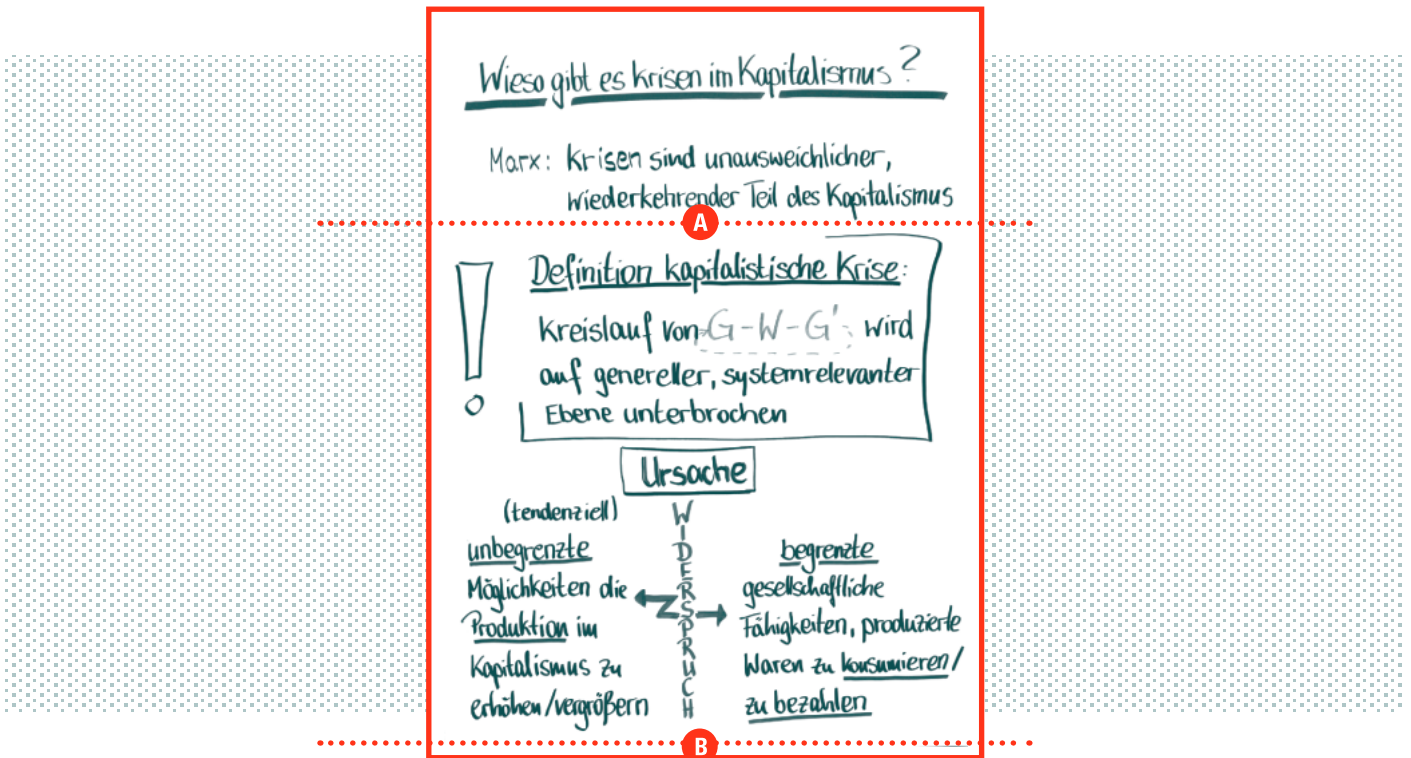 Wieso gibt es Krisen im Kapitalismus?
Marx: Krisen sind unausweichlicher,
wiederkehrender Teil des Kapitalismus
A
Definition kapitalistische Krise:
Kreislauf von G-W-G' wird
auf genereller, systemrelevanter
Ebene unterbrochen
Ursache
(tendenziell)
unbegrenzte
Möglichkeiten die
Produktion im
Kapitalismus zu
erhöhen/vergrößern
WIDERSPRUCH
begrenzte
gesellschaftliche
Fähigkeiten, produzierte
Waren zu konsumieren/
zu bezahlen
B